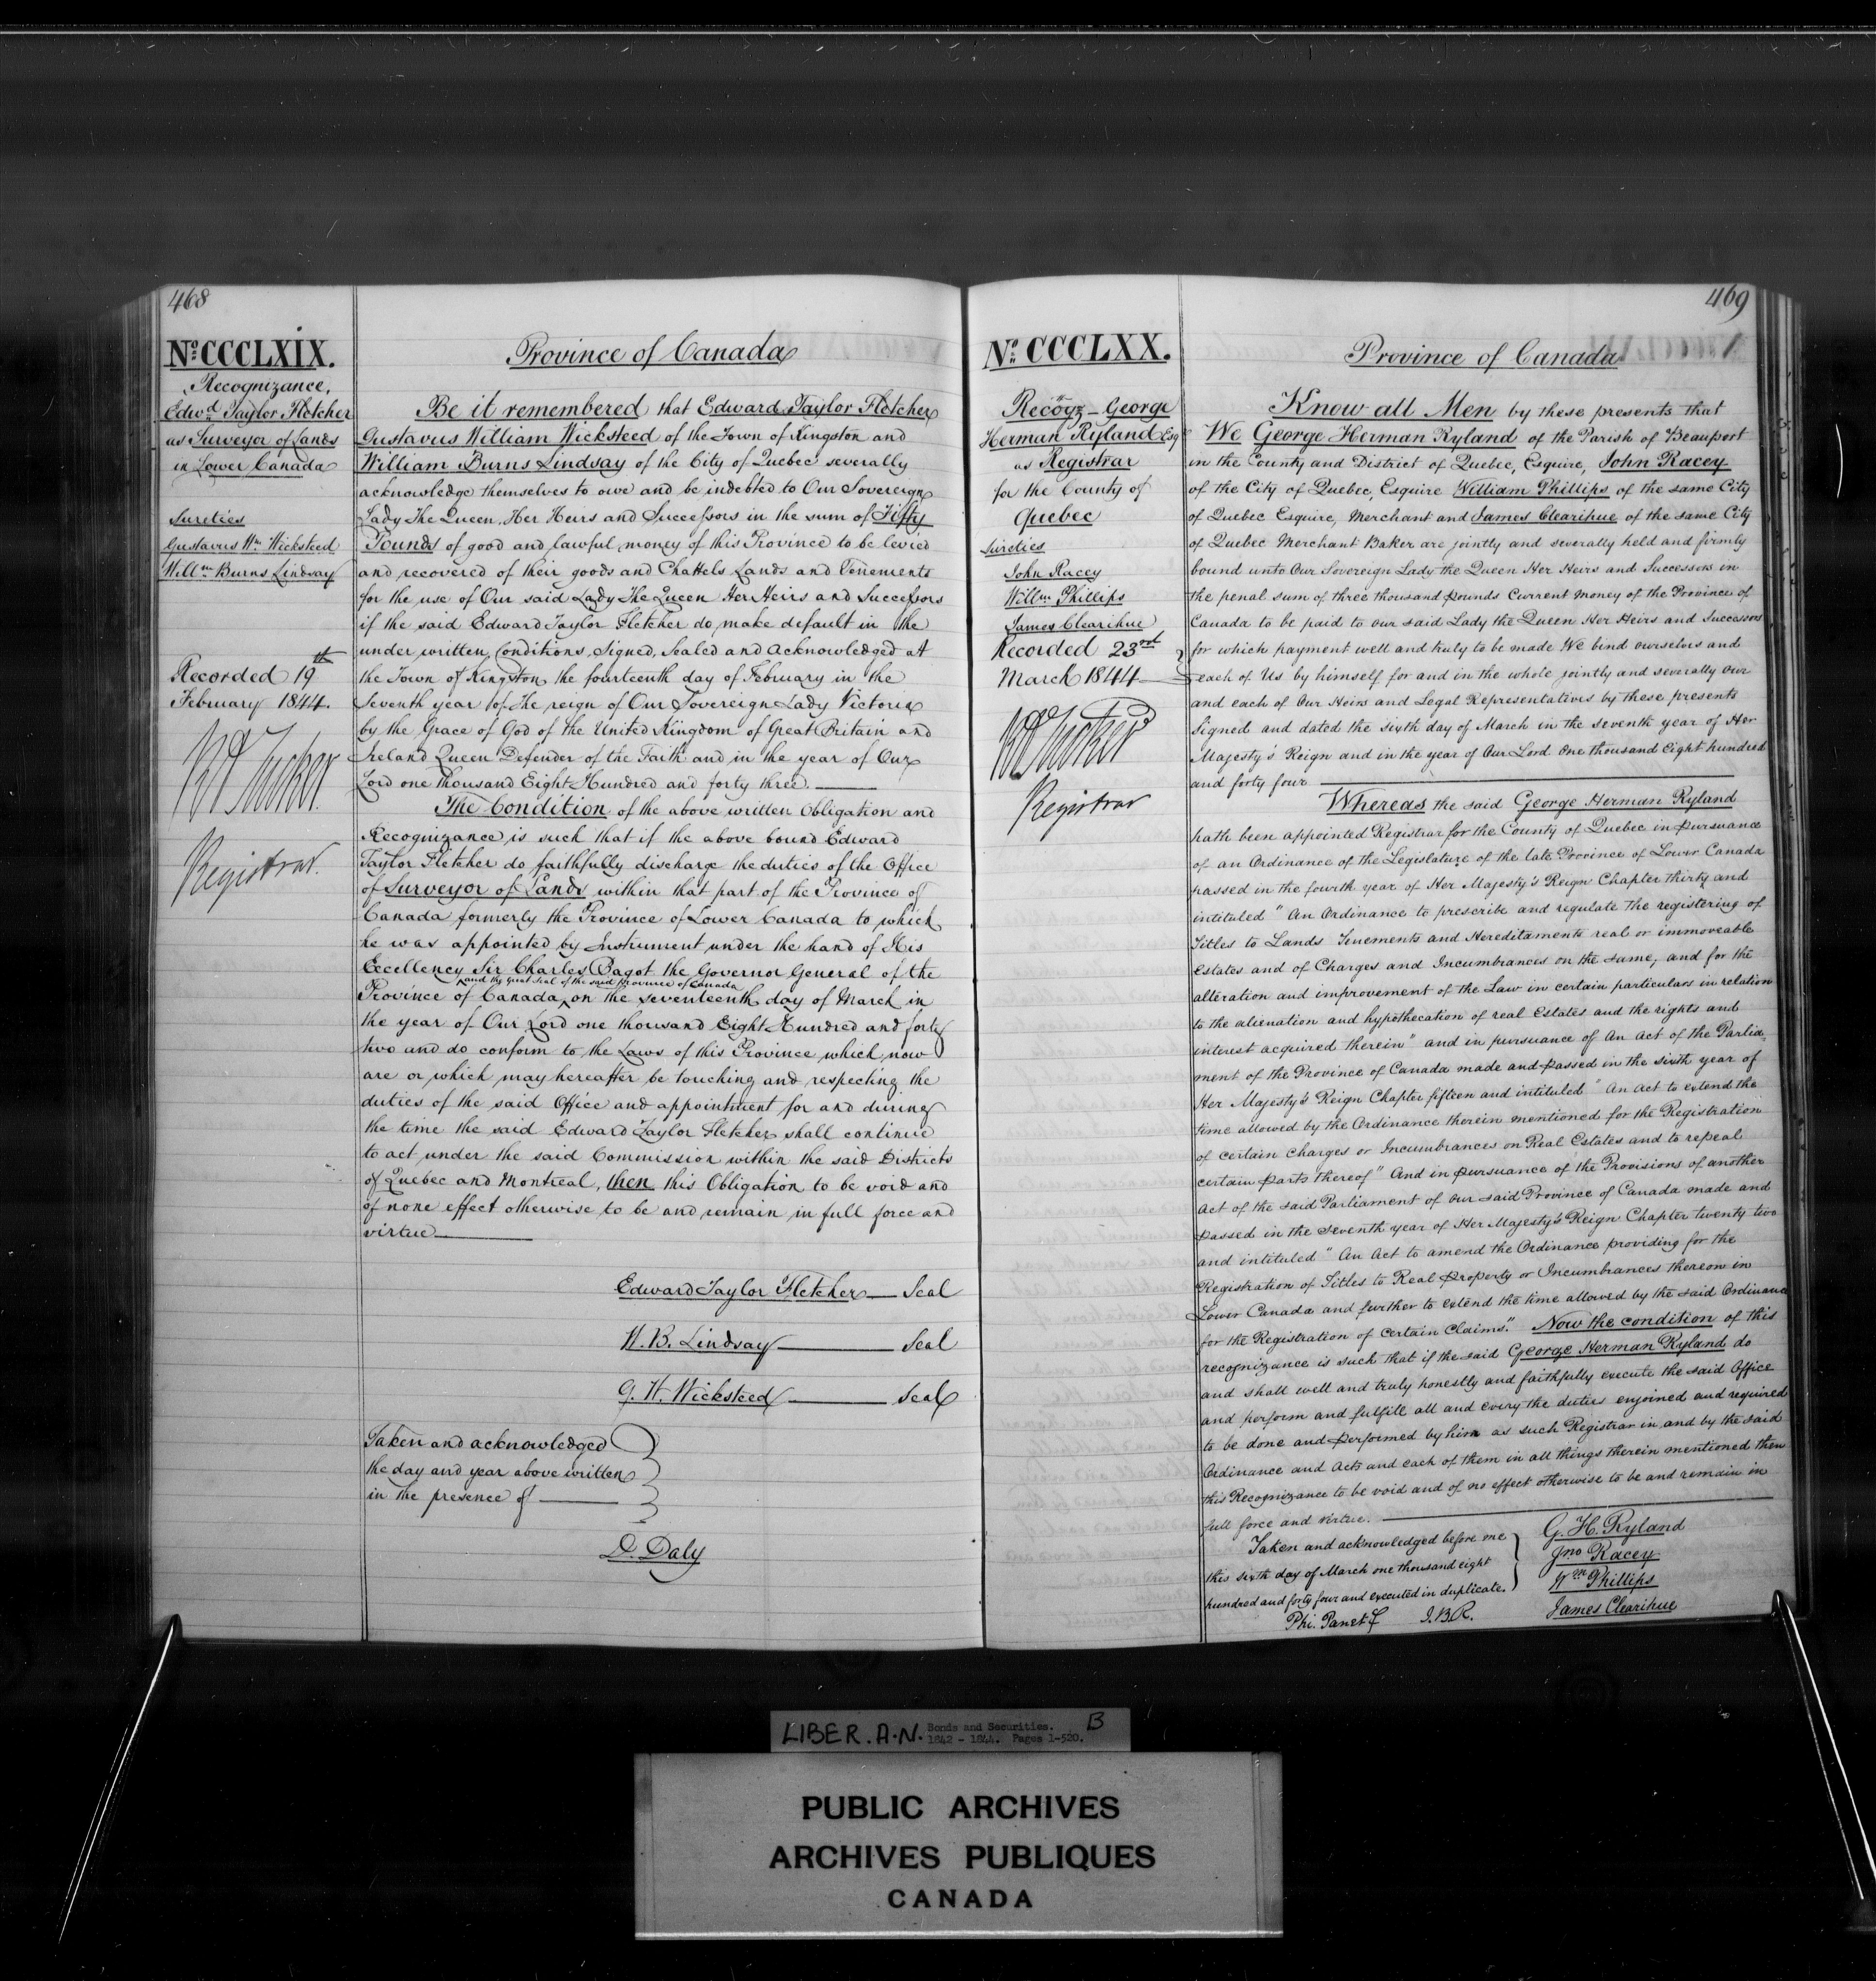 468
No. CCCLXIX.
Recognizance,
Edwd Taylor Fletcher
as Surveyor of Lands
in Lower Canada
Sureties
Gustavus Wm Wicksteed
Willm Burns Lindsay
Recorded 19th
February 1844.
R A Tucker
Registrar.
Province of Canada
Be it remembered that Edward Taylor Fletcher
Gustavus William Wicksteed of the Town of Kingston and
William Burns Lindsay of the City of Quebec severally
acknowledge themselves to owe and be indebted to Our Sovereign
Lady The Queen, Her Heirs and Successors in the sum of Fifty
Pounds of good and lawful money of this Province to be levied
and recovered of their goods and Chattels Lands and Tenements
for the use of Our said Lady The Queen Her Heirs and Successors
if the said Edward Taylor Fletcher do make default in the
under written Conditions, Signed, Sealed and Acknowledged at
the Town of Kingston the fourteenth day of February in the
Seventh year of The reign of Our Sovereign Lady Victoria
by the Grace of God of the United Kingdom of Great Britain and
Ireland Queen Defender of the Faith and in the year of Our
Lord one thousand Eight Hundred and forty three.
The Condition of the above written Obligation and
Recognizance is such that if the above bound Edward
Taylor Fletcher do faithfully discharge the duties of the Office
of Surveyor of Lands within that part of the Province of
Canada formerly the Province of Lower Canada to which
he was appointed by Instrument under the hand of His
Excellency Sir Charles Bagot the Governor General of the
and the great Seal of the said Province of Canada
Province of Canada on the seventeenth day of March in
the year of Our Lord one thousand Eight Hundred and forty
two and do conform to the Laws of this Province which now
are or which may hereafter be touching and respecting the
duties of the said Office and appointment for and during
the time the said Edward Taylor Fletcher shall continue
to act under the said Commission within the said Districts
of Quebec and Montreal, then this Obligation to be void and
of none effect otherwise to be and remain in full force and
virtue
Edward Taylor Fletcher Seal
W. B. Lindsay Seal
G. W. Wicksteed Seal
Taken and acknowledged
the day and year above written
in the presence of
D. Daly
469
No. CCCLXX.
Recogz - George
Herman Ryland Esqr
as Registrar
for the County of
Quebec
Sureties
John Racey
Willm Phillips
James Clearihue
Recorded 23rd
March 1844
R A Tucker
Registrar
Province of Canada
Know all Men by these presents that
We George Herman Ryland of the Parish of Beauport
in the County and District of Quebec, Esquire, John Racey
of the City of Quebec, Esquire William Phillips of the same City
of Quebec Esquire, Merchant and James Clearihue of the same City
of Quebec Merchant Baker are jointly and severally held and firmly
bound unto Our Sovereign Lady the Queen Her Heirs and Successors in
the penal sum of three thousand pounds Current money of the Province of
Canada to be paid to our said Lady the Queen Her Heirs and Successors
for which payment well and truly to be made We bind ourselves and
each of Us by himself for and in the whole jointly and severally our
and each of Our Heirs and Legal Representatives by these presents
Signed and dated the sixth day of March in the seventh year of Her
Majesty's Reign and in the year of Our Lord One thousand Eight hundred
and forty four
Whereas the said George Herman Ryland
hath been appointed Registrar for the County of Quebec in pursuance
of an Ordinance of the Legislature of the late Province of Lower Canada
passed in the fourth year of Her Majesty's Reign Chapter thirty and
intituled "An Ordinance to prescribe and regulate the registering of
Titles to Lands Tenements and Hereditaments real or immoveable
Estates and of Charges and Incumbrances on the same, and for the
alteration and improvement of the Law in certain particulars in relation
to the alienation and hypothecation of real Estates and the rights and
interest acquired therein" and in pursuance of An Act of the Parlia-
ment of the Province of Canada made and passed in the sixth year of
Her Majesty's Reign Chapter fifteen and intituled "An Act to extend the
time allowed by the Ordinance therein mentioned for the Registration
of certain Charges or Incumbrances on Real Estates and to repeal
certain parts thereof" And in pursuance of the Provisions of another
Act of the said Parliament of our said Province of Canada made and
passed in the seventh year of Her Majesty's Reign Chapter twenty two
and intituled "An Act to amend the Ordinance providing for the
Registration of Titles to Real Property or Incumbrances thereon in
Lower Canada and further to extend the time allowed by the said Ordinance
for the Registration of certain Claims". Now the condition of this
recognizance is such that if the said George Herman Ryland do
and shall well and truly honestly and faithfully execute the said Office
and perform and fulfill all and every the duties enjoined and required
to be done and performed by him as such Registrar in and by the said
Ordinance and Acts and each of them in all things therein mentioned then
this Recognizance to be void and of no effect otherwise to be and remain in
full force and virtue.
Taken and acknowledged before me
this sixth day of March one thousand eight
hundred and forty four and executed in duplicate.
Phi. Panet J. B.R.
G. H. Ryland
Jno Racey
Wm Phillips
James Clearihue
LIBER. A.N. Bonds and Securities. B
1842 - 1844. Pages 1-520.
PUBLIC ARCHIVES
ARCHIVES PUBLIQUES
CANADA